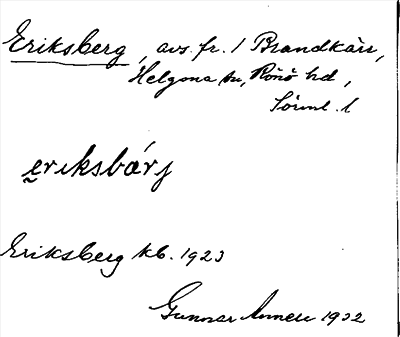 Eriksberg, avs. fr. 1 Brandkärr,
Helgona sn, Rönö hd,
Sörml. l
eriksbárj
Eriksberg kb. 1923
Gunnar 1932